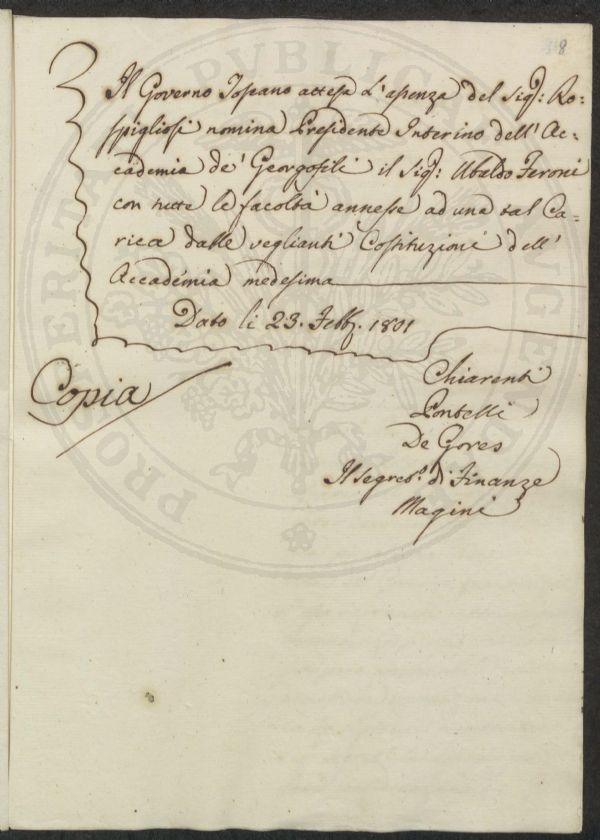 8
Il Governo Toscano attesa l'assenza del Sig.r Ro=
spigliosi nomina Presidente Interino dell'Ac=
cademia de' Georgofili il Sig.r Ubaldo Feroni
con tutte le facoltà annesse ad una tal Ca=
rica dalle veglianti Costituzioni dell'
Accademia medesima
Dato li 23. Febb.o 1801
Copia
Chiarenti
Pontelli
De Gores
Il Segret.o di Finanze
Magini
PROSPERITATI PUBLICAE AUGENDAE